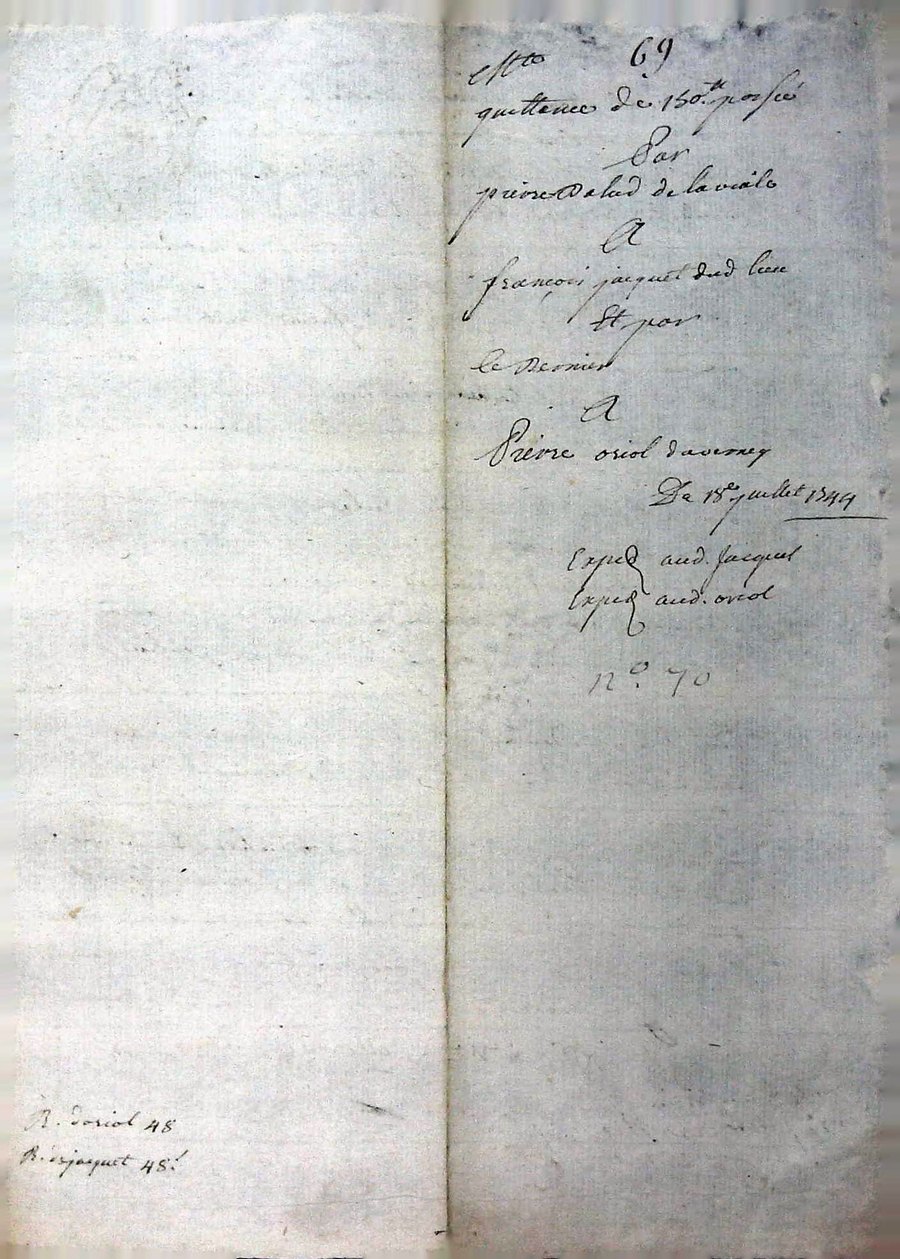 69
quittance de 150.tt
Par
pierre Dalud de la viale
A
françois jacquet dud lieu
Et par
le Dernier
A
Pierre oriol daverney
De 18e juillet 1744
Exped aud. Jacquet
Exped aud. oriol
n° 70
R. doriol 48
R. jacquet 48